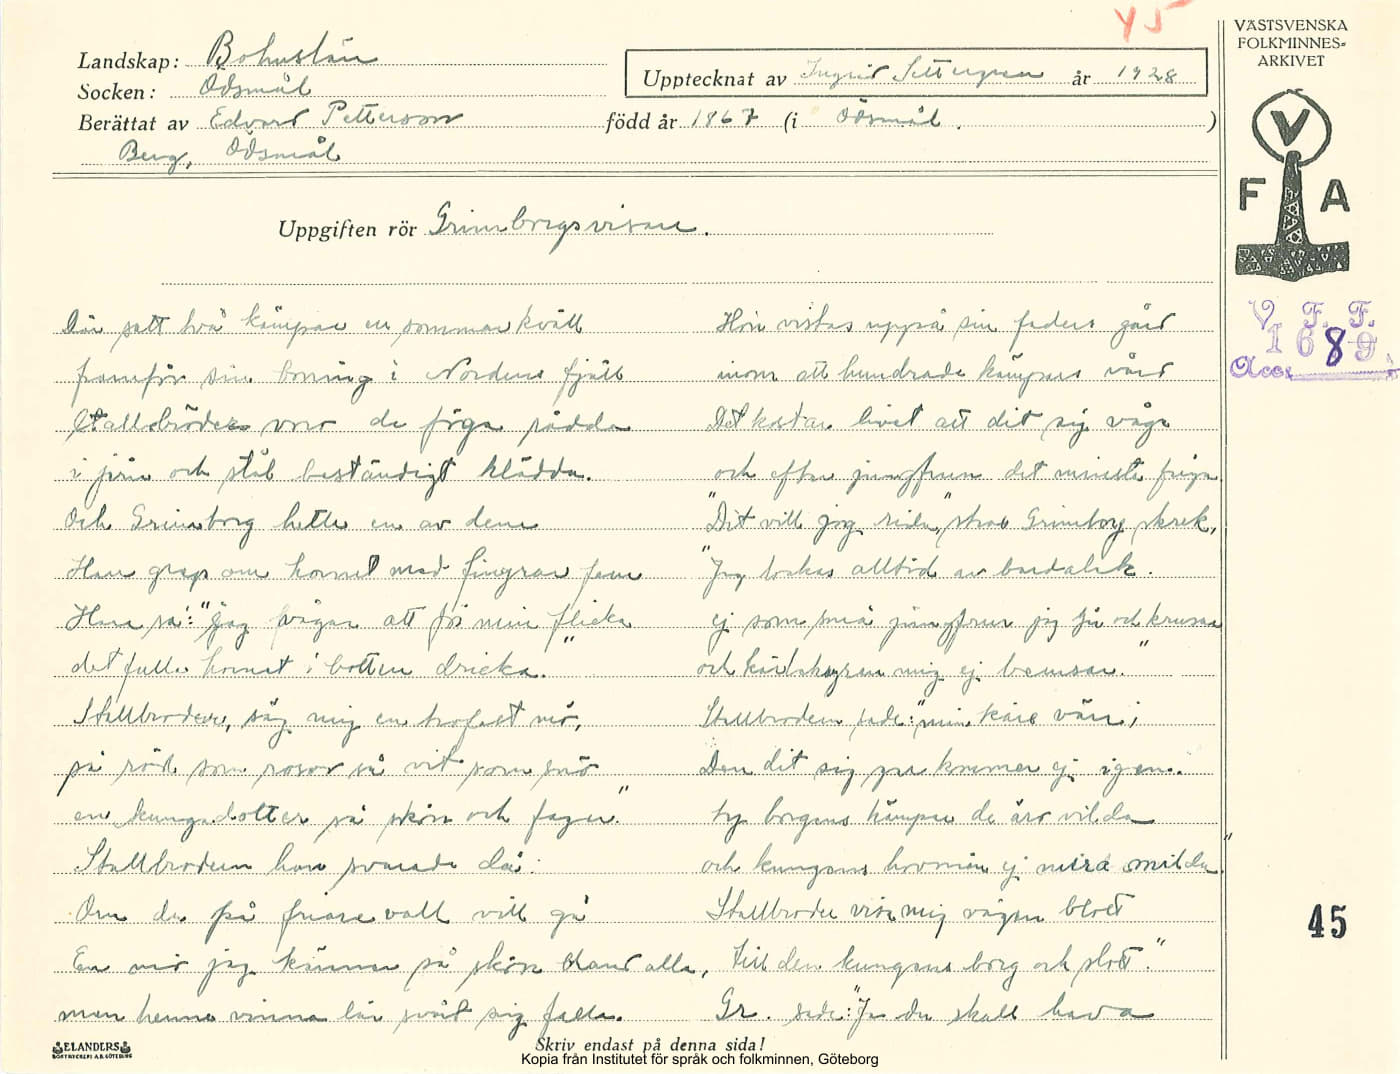 45
VÄSTSVENSKA
FOLKMINNES-
ARKIVET
Landskap: Bohuslän
Socken: Ödsmål
Upptecknat av Ingrid Settergren år 1928
Berättat av Edvard Petterson född år 1867 (i Ödsmål.)
Berg, Ödsmål
V
F A
Uppgiften rör Grimborgsvisan.
V. F. F.
1689
Acc.
Där satt två kämpar en sommarkväll
framför sin boning i Nordens fjäll
Stallbröder voro de föga rädda
i järn och stål beständigt klädda.
Och Grimborg hette en av dem
Han grep om hornet med fingrar fem
Han sa': "Jag vågar att för min flicka
det fulla hornet i botten dricka."
Stallbroder, säg mig en trofast mö,
så röd som rosor så vit som snö
en kungadotter så skön och fager."
Stallbrodern han svarade då:
Om du på friarevall vill gå
En mö jag känner så skön bland alla,
men henne vinna lär svårt sig falla.
Hon vistas uppå sin faders gård
inom ett hundrade kämpars vård
Det kostar livet att dit sig våga
och efter jungfrun det minsta fråga.
"Dit vill jag rida," strax Grimborg skrek,
"Jag lockas alltid av bardalek.
ej som små jungfrur jag ju och krusar
och kärleksyran mig ej berusar."
Stallbrodern sade: "min käre vän;
Den dit sig ger kommer ej igen.
ty borgens kämpar de äro vilda
och kungens hovmän ej mera milda."
Stallbroder visa mig vägen blott
till den kungens borg och slott."
Gr. sade: "Ja du skall hava
45
ELANDERS
BOKTRYCKERI A.B. GÖTEBORG
Skriv endast på denna sida!
Kopia från Institutet för språk och folkminnen, Göteborg